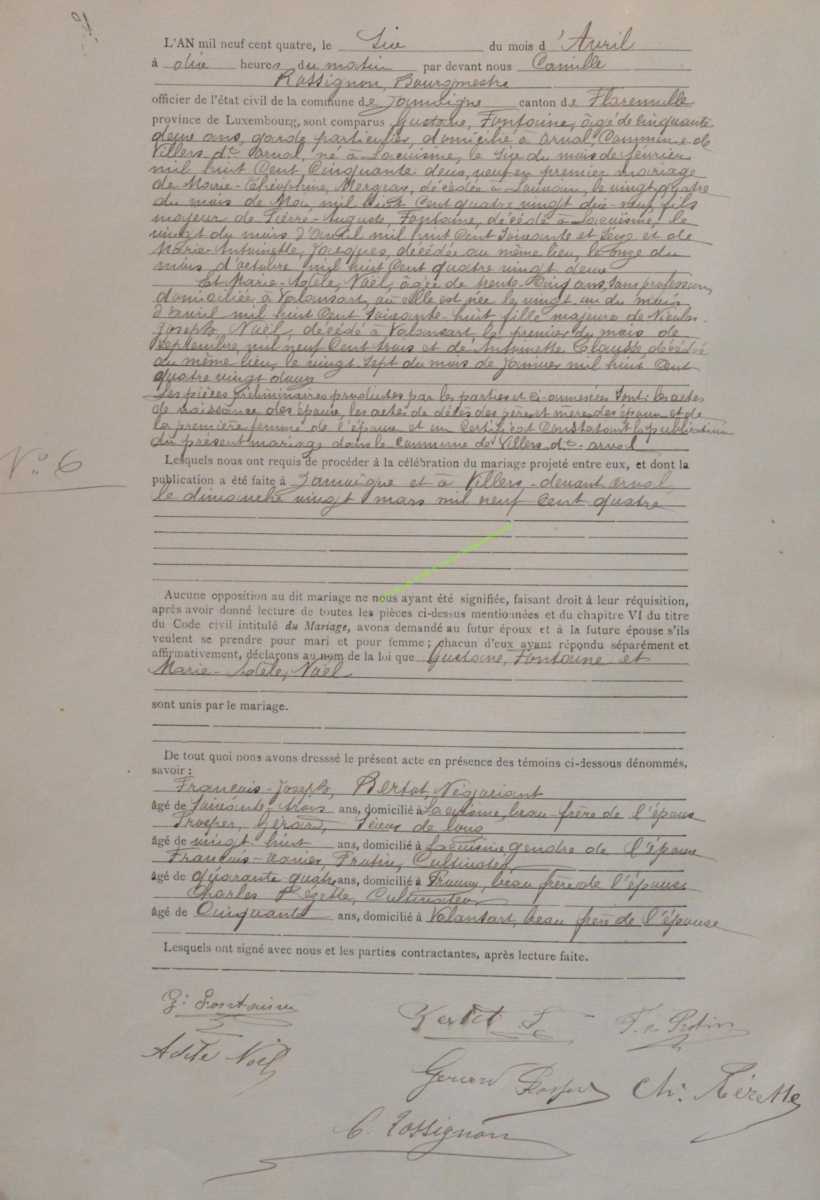 L'AN mil neuf cent quatre, le Six du mois d'Avril
à dix heures du matin par devant nous Camille
Rossignon, Bourgmestre
officier de l'état civil de la commune de Jamoigne canton de Florenville
province de Luxembourg, sont comparus Gustave, Fontaine, âgé de cinquante
deux ans, garde particulier, domicilié à Orval, Commune de
Villers dt Orval, né à Lacuisine, le Six du mois de février
mil huit Cent Cinquante deux, veuf en premier mariage
de Marie-Théophine, Mergeas, décédée à Louvain, le vingt quatre
du mois de Mai, mil huit Cent quatre vingt dix-neuf fils
majeur de Pierre-Auguste, Fontaine, décédé à Lacuisine, le
vingt du mois d'avril mil huit Cent Soixante et Seize et de
Marie-Antoinette, Jacques, décédée au même lieu, le onze du
mois d'octobre mil huit Cent quatre vingt deux
Et Marie-Adèle, Noël, âgée de trente Cinq ans, Sans profession,
domiciliée à Valansart, où elle est née le vingt un du mois
d'avril mil huit Cent Soixante-huit fille majeure de Nicolas-
Joseph, Noël, décédé à Valansart le premier du mois de
Septembre mil neuf Cent trois et de Antoinette Clausse décédée
au même lieu, le vingt Sept du mois de Janvier mil huit Cent
quatre vingt douze
Les pièces préliminaires produites par les parties et ci-annexées Sont: les actes
de naissance des époux, les actes de décès des pères et mères des époux et de
la première femme de l'époux et un Certificat Constatant la publication
du présent mariage dans la commune de Villers dt Orval
Nº 6
Lesquels nous ont requis de procéder à la célébration du mariage projeté entre eux, et dont la
publication a été faite à Jamoigne et à Villers-devant Orval,
le dimanche vingt mars mil neuf Cent quatre
Aucune opposition au dit mariage ne nous ayant été signifiée, faisant droit à leur réquisition,
après avoir donné lecture de toutes les pièces ci-dessus mentionnées et du chapitre VI du titre
du Code civil intitulé du Mariage, avons demandé au futur époux et à la future épouse s'ils
veulent se prendre pour mari et pour femme ; chacun d'eux ayant répondu séparément et
affirmativement, déclarons au nom de la loi que Gustave, Fontaine et
Marie-Adèle, Noël
sont unis par le mariage.
De tout quoi nous avons dresssé le présent acte en présence des témoins ci-dessous dénommés,
savoir :
François-Joseph, Bertot, Négociant
âgé de Soixante-trois ans, domicilié à Lacuisine, beau-frère de l'époux
Prosper, Gérard, Scieur de long
âgé de vingt huit ans, domicilié à Lacuisine gendre de l'époux
François-Xavier, Protin, Cultivateur
âgé de quarante quatre ans, domicilié à Prouvy, beau frère de l'épouse
Charles Pérette, Cultivateur
âgé de Cinquante ans, domicilié à Valansart, beau frère de l'épouse
Lesquels ont signé avec nous et les parties contractantes, après lecture faite.
G. Fontaine
Adèle Noël
F. x Protin
Gérard Prosper
Ch. Pérette
C. Rossignon